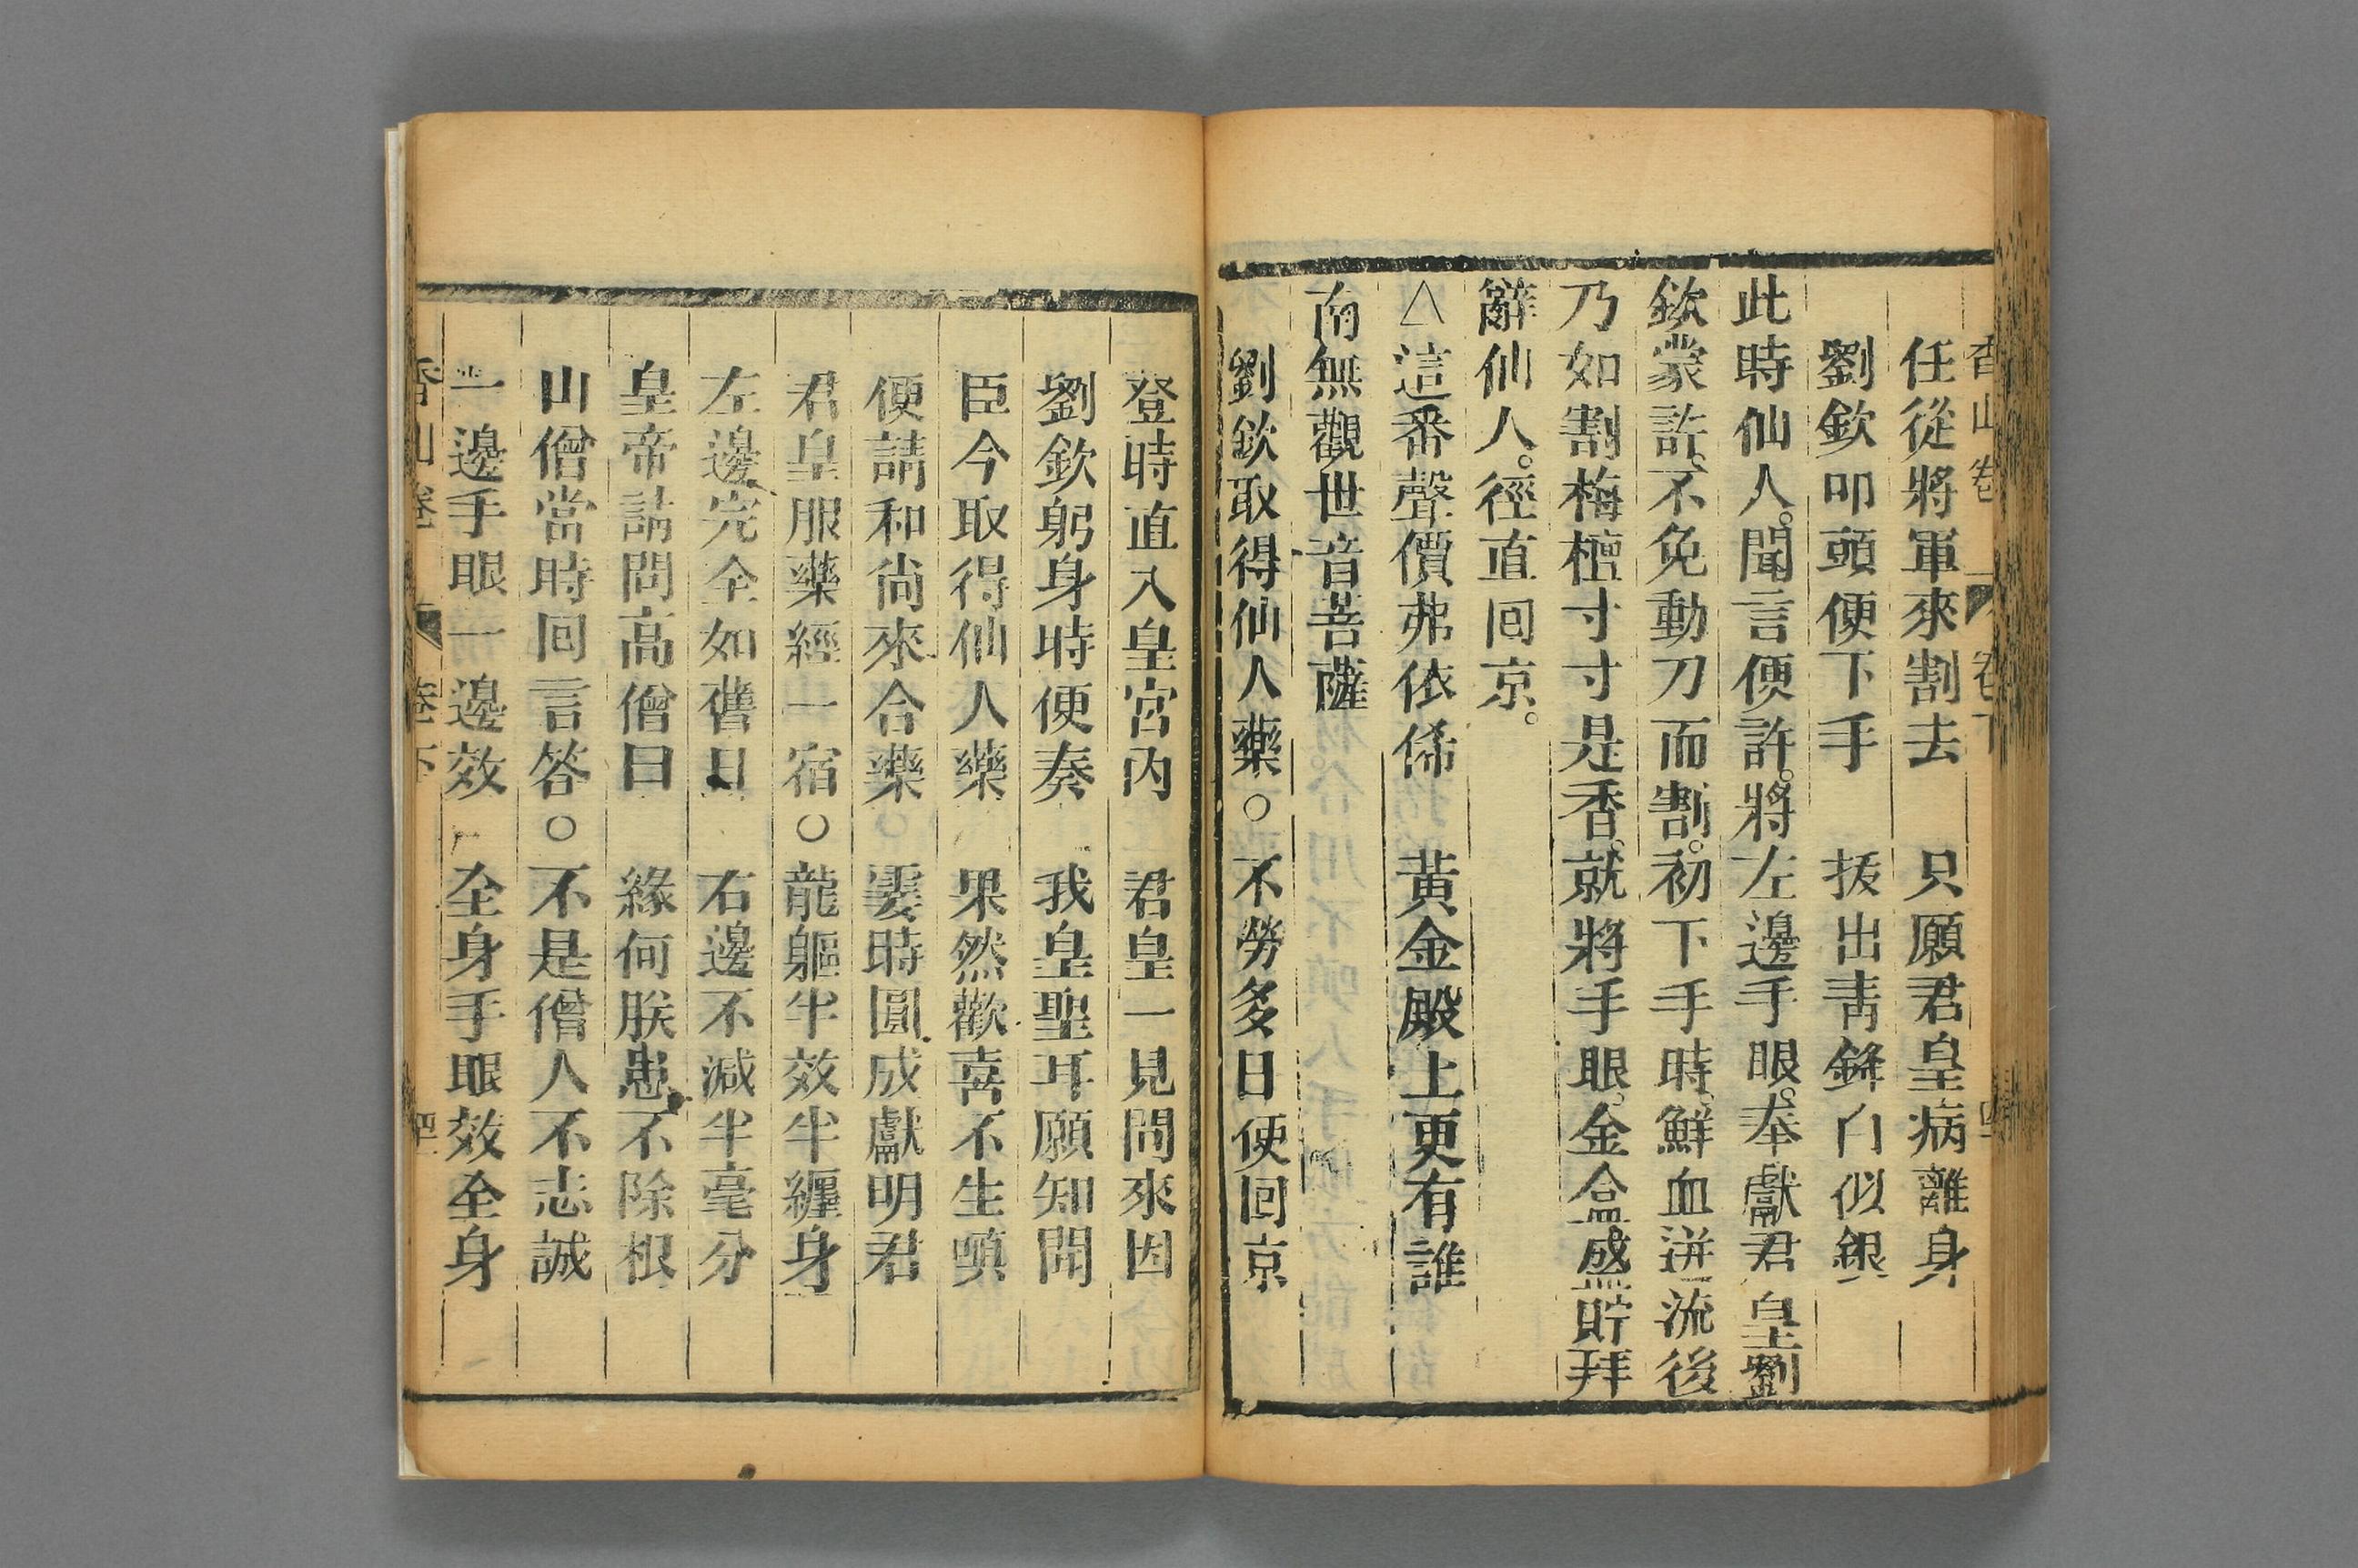 任從將軍來割去　只願君皇病離身
劉欽叩頭便下手　拔出青鋒白似銀
此時仙人。聞言便許。將左邊手眼。奉獻君皇劉
欽蒙許。不免動刀而割。初下手時。鮮血迸流後
乃如割梅檀寸寸是香。就將手眼。金盒盛貯拜
辭仙人。徑直囘京。
△這番聲價弗依俙　黃金殿上更有誰
南無觀世音菩薩
劉欽取得仙人藥○不勞多日便囘京
登時直入皇宮內　君皇一見問來因
劉欽躬身時便奏　我皇聖耳願知聞
臣今取得仙人藥　果然歡喜不生嗔
便請和尙來合藥○霎時圓成獻明君
君皇服藥經一宿○龍軀半效半纏身
左邊完全如舊日　右邊不減半毫分
皇帝請問高僧曰　緣何朕患不除根
山僧當時囘言答○不是僧人不志誠
一邊手眼一邊效　全身手眼效全身
香山卷　卷下